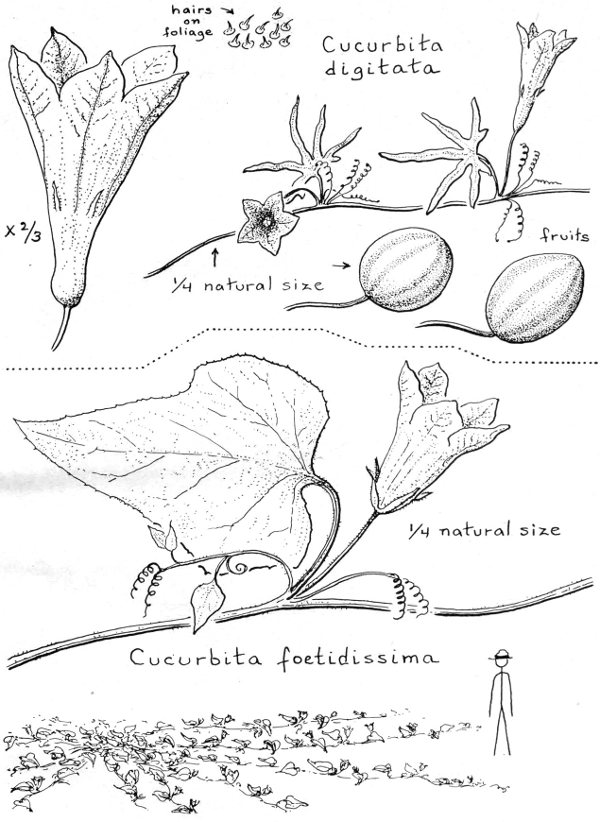 hairs
on
foliage
Cucurbita
digitata
x 2/3
fruits
1/4 natural size
1/4 natural size
Cucurbita foetidissima